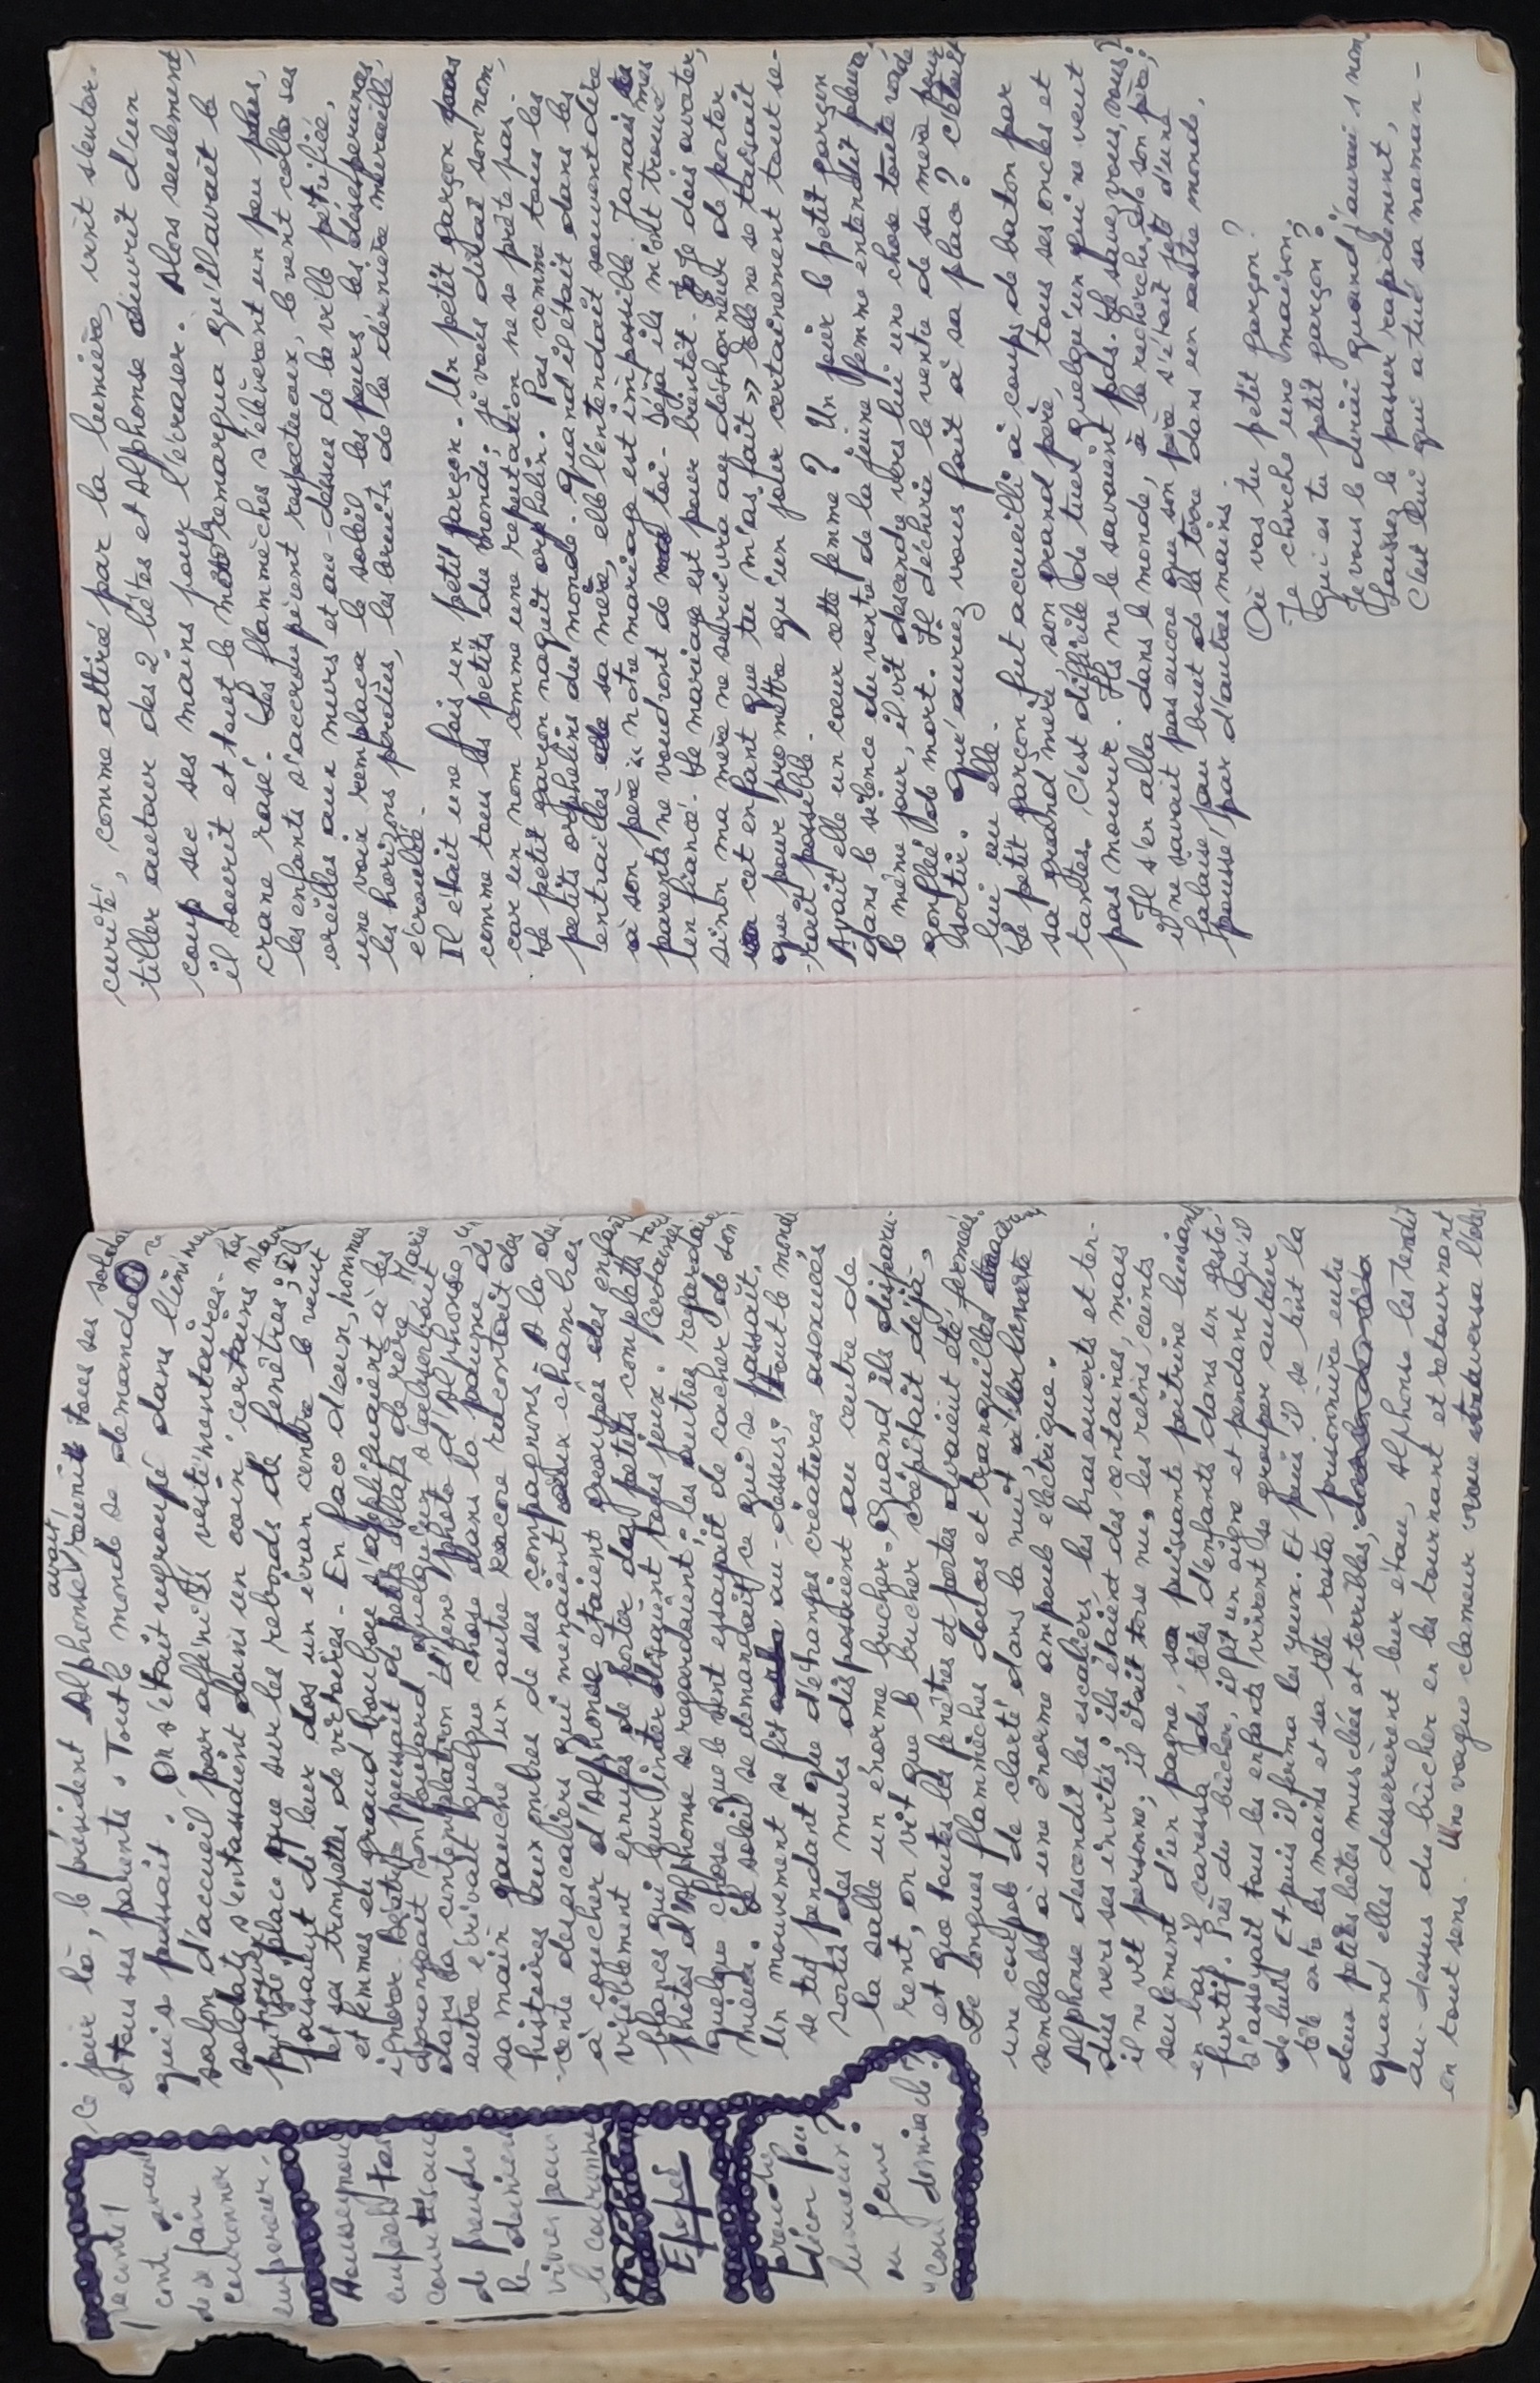 Ce jour là, le président Alphonse avait réunit tous ses soldats
et tous ses parents. Tout le monde se demandait ce
qui se passait. On s'était regroupé dans l'immense
salon d'accueil par affinités vestimentaires. Les
soldats s'entassaient dans un coin, certains n'ayant
trouvé place que sur les rebords de fenêtres, ils
faisaient de leur dos un écran contre le vent
et ses trompettes de victoires. En face d'eux, hommes
et femmes du grand boubou s'appliquaient à les
ignorer. Béatrice poussait de petits éclats de rire, Marie
arrangeait son foulard, quelqu'un s'absorbait
dans la contemplation d'une photo d'Alphonse, un
autre écrivait quelque chose dans la paume de
sa main gauche, un autre encore racontait des
histoires aux ombres de ses compagnons. A la des-
cente des escaliers qui menaient aux chambres
à coucher d'Alphonse, étaient groupés des enfants
visiblement ennuyés de porter des petits complets tout
blancs qui leur interdisaient tous jeux. Certaines
photos d'Alphonse se regardaient, les autres regardaient
quelque chose que le vent essayait de cacher de son
mieux. Le soleil se demandait ce qui se passait.
Un mouvement se fit au-dessus; tout le monde
se tut pendant que d'étranges créatures asexuées
sorties des murs disposaient au centre de
la salle un énorme bucher. Quand ils disparu-
rent, on vit que le bucher crépitait déjà,
et que toutes les fenêtres et portes avaient été fermées.
De longues flammèches douces et tranquilles
une coupole de clarté dans la nuit
semblable à une énorme ampoule électrique.
Alphonse descendit les escaliers, les bras ouverts et ten-
dus vers ses invités; ils étaient des centaines, mais
il ne vit personne; il était torse nu, les reins ceints
seulement d'un pagne, sa puissante poitrine luisant
en bas, il caressa des têtes d'enfants dans un geste
furtif. Près du bûcher, il fit un signe et pendant qu'il
s'asseyait tous les enfants vinrent se grouper autour
de lui. Et puis il ferma les yeux. Et puis il se tint la
tête entre les mains et sa tête resta prisonnière entre
deux petites bêtes musclées et terribles;
quand elles desserrèrent leur étau, Alphonse les tendit
au-dessus du bûcher en les tournant et retournant
en tout sens. Une vague clameur vous traversa l'obs-
raconter 1
conte avant
de se faire
couronner
empereur.
Monseigneur
empeste tes
courtisans
de prendre
les derniers
vivres pour
le couronne
Epopée
prendre
Idicon pou
lumineux?
ou Jeune
"Cour dominicale?"
curité, comme attirée par la lumière, vint s'enter-
tiller autour des 2 bêtes et Alphonse ouvrit d'un
coup sec ses mains pour l'écraser. Alors seulement,
il sourit et tout le monde remarqua qu'il avait le
crane rasé. Les flammèches s'élevèrent un peu plus,
les enfants s'accroupirent respectueux, le vent colla ses
oreilles aux murs et au-dessus de la ville pétrifiée,
une voix remplaça le soleil, les peurs, les désespérances,
les horizons perdus, les bruits de la dernière muraille
écroulée.
Il était une fois un petit garçon. Un petit garçon
comme tous les petits du monde. Je vous dirai son nom,
car un nom comme une réputation ne se prête pas.
Le petit garçon naquit orphelin. Pas comme tous les
petits orphelins du monde. Quand il était dans les
entrailles de sa mère, elle l'entendait souvent dire
à son père « notre mariage est impossible. Jamais mes
parents ne voudront de toi. Déjà ils m'ont trouvé
un fiancé. Le mariage est pour bientôt. Je dois avorter,
sinon ma mère ne survivra au déshonneur de porter
cet enfant que tu m'as fait » Elle ne se taisait
que pour promettre qu'un jour certainement tout se-
rait possible.
Avait elle un coeur cette femme? Un jour le petit garçon
dans le silence du ventre de la jeune femme entendit pleurer,
le même jour, il vit descendre vers lui une chose toute raide
gonflée de mort. Il déchira le ventre de sa mère pour
sortir. Qu'auriez vous fait à sa place? C'était
lui ou elle.
Le petit garçon fut accueilli à coups de baton par
sa grand mère, son grand père, tous ses oncles et
tantes. C'est difficile de tuer quelqu'un qui ne veut
pas mourir. Ils ne le savaient pas. Le savez vous, vous?
Il s'en alla dans le monde, à la recherche de son père;
il ne savait pas encore que son père s'était jeté d'une
falaise, au bout de la terre dans un autre monde,
poussé par d'autres mains.
Où vas tu petit garçon?
Je cherche une maison.
Qui es tu petit garçon?
Je vous le dirai quand j'aurai 1 nom.
Laissez le passer rapidement,
C'est lui qui a tué sa maman -